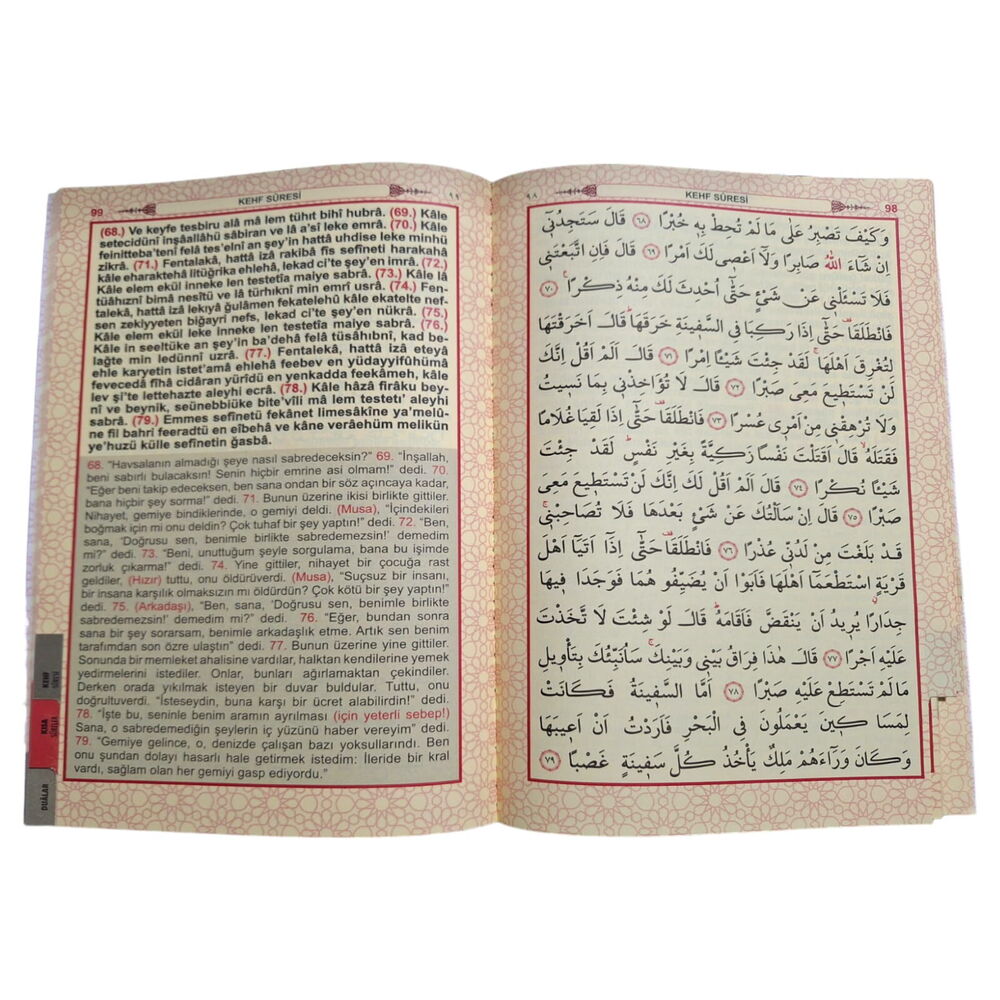 99
KEHF SÛRESİ
٩٩
(68.) Ve keyfe tesbiru alâ mâ lem tühıt bihî hubrâ. (69.) Kâle
setecidünî inşâallâhü sâbiran ve lâ a'sî leke emrâ. (70.) Kâle
feinitteba'tenî felâ tes'elnî an şey'in hattâ uhdise leke minhü
zikrâ. (71.) Fentalekâ, hattâ izâ rakibâ fîs sefîneti harakahâ
kâle eharaktehâ litüğrika ehlehâ, lekad ci'te şey'en imrâ. (72.)
Kâle elem ekül inneke len testetîa maiye sabrâ. (73.) Kâle lâ
tüâhıznî bimâ nesîtü ve lâ türhıknî min emrî usrâ. (74.) Fen-
talekâ, hattâ izâ lekıyâ ğulâmen fekatelehû kâle ekatelte nef-
sen zekiyyeten biğayri nefs, lekad ci'te şey'en nükrâ. (75.)
Kâle elem ekül leke inneke len testetîa maiye sabrâ. (76.)
Kâle in seeltüke an şey'in ba'dehâ felâ tüsâhıbnî, kad be-
lağte min ledünnî uzrâ. (77.) Fentalekâ, hattâ izâ eteyâ
ehle karyetin istet'amâ ehlehâ feebev en yüdayyifûhümâ
fevecedâ fîhâ cidâran yürîdü en yenkadda feekâmeh, kâle
lev şi'te lettehazte aleyhi ecrâ. (78.) Kâle hâzâ firâku bey-
nî ve beynik, seünebbiüke bite'vîli mâ lem testetı' aleyhi
sabrâ. (79.) Emmes sefînetü fekânet limesâkîne ya'melû-
ne fil bahri feeradtü en eîbehâ ve kâne verâehüm melikün
ye'huzü külle sefînetin ğasbâ.
68. "Havsalanın almadığı şeye nasıl sabredeceksin?" 69. "İnşallah,
beni sabırlı bulacaksın! Senin hiçbir emrine asi olmam!" dedi. 70.
"Eğer beni takip edeceksen, ben sana ondan bir söz açıncaya kadar,
bana hiçbir şey sorma!" dedi. 71. Bunun üzerine ikisi birlikte gittiler.
Nihayet, gemiye bindiklerinde, o gemiyi deldi. (Musa), "İçindekileri
boğmak için mi onu deldin? Çok tuhaf bir şey yaptın!" dedi. 72. "Ben,
sana, 'Doğrusu sen, benimle birlikte sabredemezsin!' demedim
mi?" dedi. 73. "Beni, unuttuğum şeyle sorgulama, bana bu işimde
zorluk çıkarma!" dedi. 74. Yine gittiler, nihayet bir çocuğa rast
geldiler, (Hızır) tuttu, onu öldürüverdi. (Musa), "Suçsuz bir insanı,
bir insana karşılık olmaksızın mı öldürdün? Çok kötü bir şey yaptın!"
dedi. 75. (Arkadaşı), "Ben, sana, 'Doğrusu sen, benimle birlikte
sabredemezsin!' demedim mi?" dedi. 76. "Eğer, bundan sonra
sana bir şey sorarsam, benimle arkadaşlık etme. Artık sen benim
tarafımdan son özre ulaştın" dedi. 77. Bunun üzerine yine gittiler.
Sonunda bir memleket ahalisine vardılar, halktan kendilerine yemek
yedirmelerini istediler. Onlar, bunları ağırlamaktan çekindiler.
Derken orada yıkılmak isteyen bir duvar buldular. Tuttu, onu
doğrultuverdi. "İsteseydin, buna karşı bir ücret alabilirdin!" dedi.
78. "İşte bu, seninle benim aramın ayrılması (için yeterli sebep!)
Sana, o sabredemediğin şeylerin iç yüzünü haber vereyim" dedi.
79. "Gemiye gelince, o, denizde çalışan bazı yoksullarındı. Ben
onu şundan dolayı hasarlı hale getirmek istedim: İleride bir kral
vardı, sağlam olan her gemiyi gasp ediyordu."
KEHF
SÛRESİ
KISA
SÛRELER
DUÂLAR
٩٨
KEHF SÛRESİ
98
وَكَيْفَ تَصْبِرُ عَلٰى مَا لَمْ تُحِطْ بِه۪ خُبْرًا ﴿٦٨﴾ قَالَ سَتَجِدُن۪ٓي
اِنْ شَٓاءَ اللّٰهُ صَابِرًا وَلَٓا اَعْص۪ي لَكَ اَمْرًا ﴿٦٩﴾ قَالَ فَاِنِ اتَّبَعْتَن۪ي
فَلَا تَسْـَٔلْن۪ي عَنْ شَيْءٍ حَتّٰٓى اُحْدِثَ لَكَ مِنْهُ ذِكْرًا۟ ﴿٧٠﴾
فَانْطَلَقَا۠ حَتّٰٓى اِذَا رَكِبَا فِي السَّف۪ينَةِ خَرَقَهَاۜ قَالَ اَخَرَقْتَهَا
لِتُغْرِقَ اَهْلَهَاۚ لَقَدْ جِئْتَ شَيْـًٔا اِمْرًا ﴿٧١﴾ قَالَ اَلَمْ اَقُلْ اِنَّكَ
لَنْ تَسْتَط۪يعَ مَعِيَ صَبْرًا ﴿٧٢﴾ قَالَ لَا تُؤَاخِذْن۪ي بِمَا نَس۪يتُ
وَلَا تُرْهِقْن۪ي مِنْ اَمْر۪ي عُسْرًا ﴿٧٣﴾ فَانْطَلَقَا۠ حَتّٰٓى اِذَا لَقِيَا غُلَامًا
فَقَتَلَهُۙ قَالَ اَقَتَلْتَ نَفْسًا زَكِيَّةً بِغَيْرِ نَفْسٍۜ لَقَدْ جِئْتَ
شَيْـًٔا نُكْرًا ﴿٧٤﴾ قَالَ اَلَمْ اَقُلْ لَكَ اِنَّكَ لَنْ تَسْتَط۪يعَ مَعِيَ
صَبْرًا ﴿٧٥﴾ قَالَ اِنْ سَاَلْتُكَ عَنْ شَيْءٍ بَعْدَهَا فَلَا تُصَاحِبْن۪يۚ
قَدْ بَلَغْتَ مِنْ لَدُنّ۪ي عُذْرًا ﴿٧٦﴾ فَانْطَلَقَا۠ حَتّٰٓى اِذَٓا اَتَيَٓا اَهْلَ
قَرْيَةٍۨ اسْتَطْعَمَٓا اَهْلَهَا فَاَبَوْا اَنْ يُضَيِّفُوهُمَا فَوَجَدَا ف۪يهَا
جِدَارًا يُر۪يدُ اَنْ يَنْقَضَّ فَاَقَامَهُۜ قَالَ لَوْ شِئْتَ لَتَّخَذْتَ
عَلَيْهِ اَجْرًا ﴿٧٧﴾ قَالَ هٰذَا فِرَاقُ بَيْن۪ي وَبَيْنِكَۚ سَاُنَبِّئُكَ بِتَأْو۪يلِ
مَا لَمْ تَسْتَطِعْ عَلَيْهِ صَبْرًا ﴿٧٨﴾ اَمَّا السَّف۪ينَةُ فَكَانَتْ
لِمَسَاك۪ينَ يَعْمَلُونَ فِي الْبَحْرِ فَاَرَدْتُ اَنْ اَع۪يبَهَا
وَكَانَ وَرَٓاءَهُمْ مَلِكٌ يَأْخُذُ كُلَّ سَف۪ينَةٍ غَصْبًا ﴿٧٩﴾